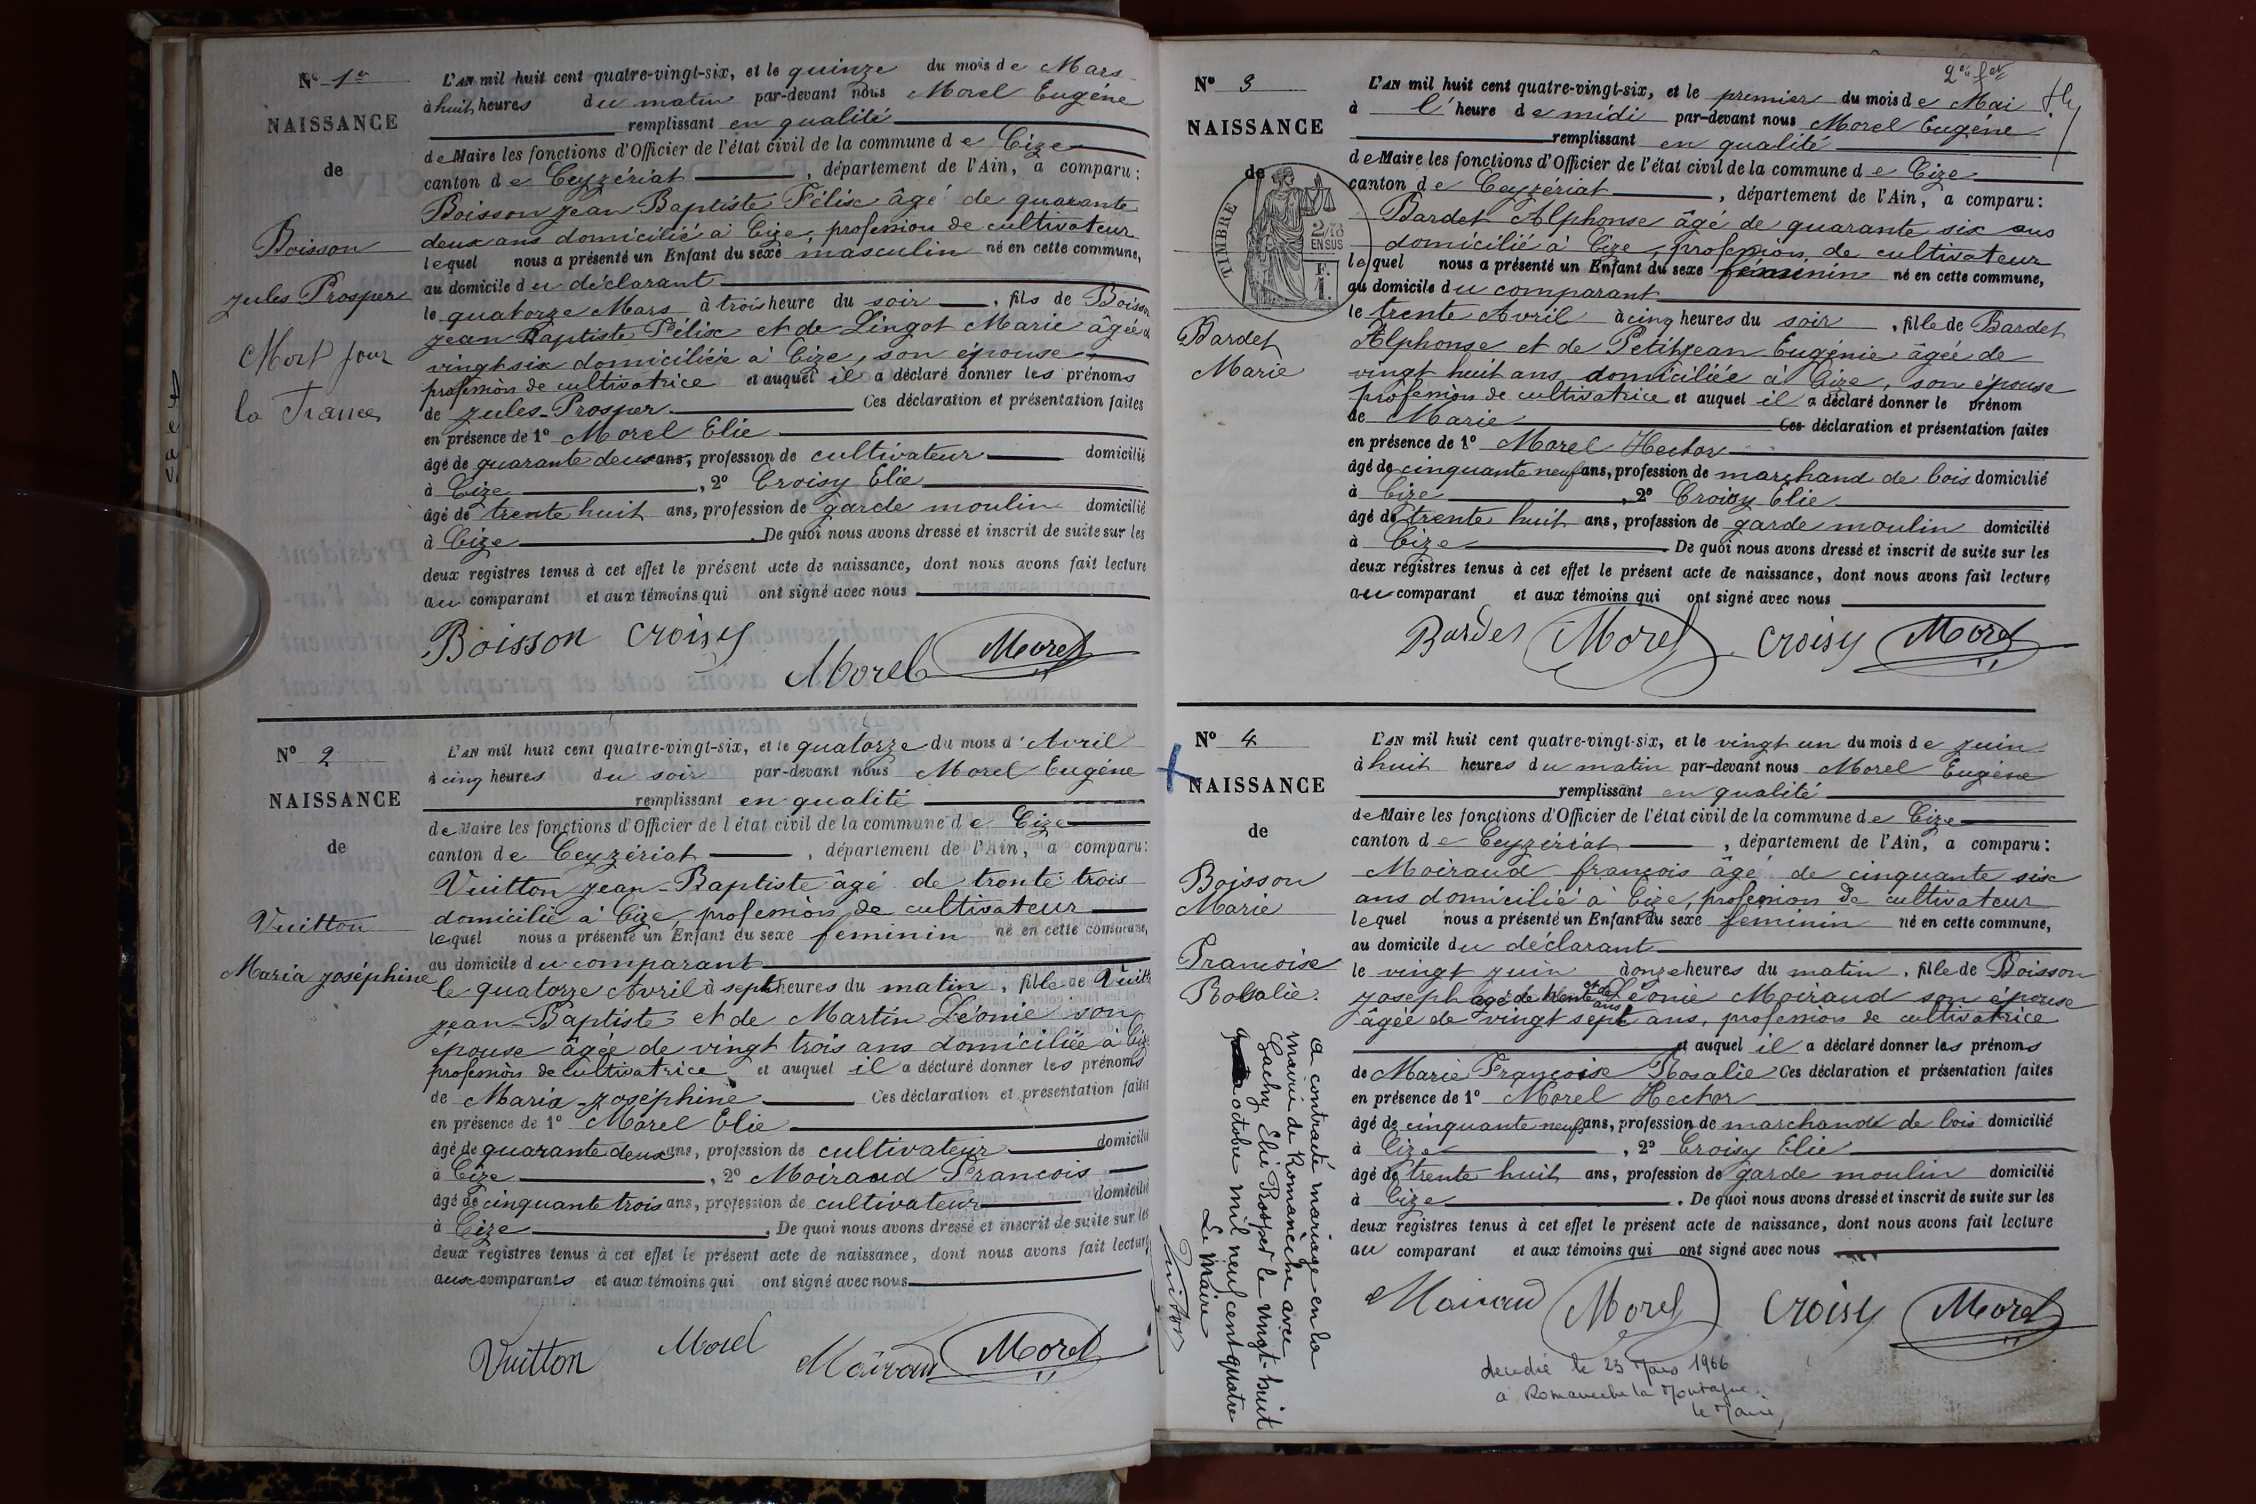 Nº 1er
NAISSANCE
de
Boisson
Jules Prosper
Mort pour
la France
L'AN mil huit cent quatre-vingt-six, et le quinze du mois de Mars
à huit heures du matin par-devant nous Morel Eugéne
remplissant en qualité
de Maire les fonctions d'Officier de l'état civil de la commune de Cize
canton de Ceyzériat, département de l'Ain, a comparu:
Boisson Jean Baptiste Félix âgé de quarante
deux ans domicilié à Cize, profession de cultivateur
lequel nous a présenté un Enfant du sexe masculin né en cette commune,
au domicile du déclarant
le quatorze Mars à trois heure du soir, fils de Boisson
Jean Baptiste Félix et de Lingot Marie âgée d
vingt six domiciliée à Cize, son épouse
profession de cultivatrice et auquel il a déclaré donner les prénoms
de Jules-Prosper Ces déclaration et présentation faites
en présence de 1º Morel Elie
âgé de quarante deux ans, profession de cultivateur domicilié
à Cize, 2º Croisy Elie
âgé de trente huit ans, profession de garde moulin domicilié
à Cize. De quoi nous avons dressé et inscrit de suite sur les
deux registres tenus à cet effet le présent acte de naissance, dont nous avons fait lecture
au comparant et aux témoins qui ont signé avec nous
Boisson Croisy Morel Morel
Nº 2
NAISSANCE
de
Vuitton
Maria Joséphine
L'AN mil huit cent quatre-vingt-six, et le quatorze du mois d'Avril
à cinq heures du soir par-devant nous Morel Eugéne
remplissant en qualité
de Maire les fonctions d'Officier de l'état civil de la commune de Cize
canton de Ceyzériat, département de l'Ain, a comparu:
Vuitton Jean-Baptiste âgé de trente trois
domicilié à Cize, profession de cultivateur
lequel nous a présenté un Enfant du sexe feminin né en cette commune,
au domicile du comparant
le quatorze Avril à sept heures du matin, fille de Vuitt
Jean-Baptiste et de Martin Léonie son
épouse âgée de vingt trois ans domiciliée à Cize
profession de cultivatrice et auquel il a déclaré donner les prénoms
de Maria-Joséphine Ces déclaration et présentation faites
en présence de 1º Morel Elie
âgé de quarante deux ans, profession de cultivateur domicilié
à Cize, 2º Moiraud Francois
âgé de cinquante trois ans, profession de cultivateur domicilié
à Cize. De quoi nous avons dressé et inscrit de suite sur les
deux registres tenus à cet effet le présent acte de naissance, dont nous avons fait lecture
aux comparants et aux témoins qui ont signé avec nous
Vuitton Morel Moiraud Morel
2e fet
Nº 3
NAISSANCE
de
TIMBRE
2/10
EN SUS
F.
1.
Bardet
Marie
L'AN mil huit cent quatre-vingt-six, et le premier du mois de Mai
à l'heure de midi par-devant nous Morel Eugéne
remplissant en qualité
de Maire les fonctions d'Officier de l'état civil de la commune de Cize
canton de Ceyzériat, département de l'Ain, a comparu:
Bardet Alphonse âgé de quarante six ans
domicilié à Cize, profession de cultivateur
lequel nous a présenté un Enfant du sexe féminin né en cette commune,
au domicile du comparant
le trente Avril à cinq heures du soir, fille de Bardet
Alphonse et de Petitjean Eugénie âgée de
vingt huit ans domiciliée à Cize, son épouse
profession de cultivatrice et auquel il a déclaré donner le prénom
de Marie Ces déclaration et présentation faites
en présence de 1º Morel Hector
âgé de cinquante neuf ans, profession de marchand de bois domicilié
à Cize, 2º Croisy Elie
âgé de trente huit ans, profession de garde moulin domicilié
à Cize. De quoi nous avons dressé et inscrit de suite sur les
deux registres tenus à cet effet le présent acte de naissance, dont nous avons fait lecture
au comparant et aux témoins qui ont signé avec nous
Bardet Morel Croisy Morel
Nº 4
NAISSANCE
de
Boisson
Marie
Francoise
Rosalie.
a contracté mariage en la
mairie de Romanèche avec
Zachy Elie Prosper le vingt-huit
octobre mil neuf cent quatre
Le Maire
Vuitton
L'AN mil huit cent quatre-vingt-six, et le vingt un du mois de Juin
à huit heures du matin par-devant nous Morel Eugéne
remplissant en qualité
de Maire les fonctions d'Officier de l'état civil de la commune de Cize
canton de Ceyzériat, département de l'Ain, a comparu:
Moiraud françois âgé de cinquante six
ans domicilié à Cize, profession de cultivateur
lequel nous a présenté un Enfant du sexe feminin né en cette commune,
au domicile du déclarant
le vingt Juin à onze heures du matin, fille de Boisson
Joseph âgé de trente ans et de Léonie Moiraud son épouse
âgée de vingt sept ans, profession de cultivatrice
et auquel il a déclaré donner les prénoms
de Marie Françoise Rosalie Ces déclaration et présentation faites
en présence de 1º Morel Hector
âgé de cinquante neuf ans, profession de marchand de bois domicilié
à Cize, 2º Croisy Elie
âgé de trente huit ans, profession de garde moulin domicilié
à Cize. De quoi nous avons dressé et inscrit de suite sur les
deux registres tenus à cet effet le présent acte de naissance, dont nous avons fait lecture
au comparant et aux témoins qui ont signé avec nous
Moiraud Morel Croisy Morel
décédée le 23 Mars 1966
a Romanèche la Montagne.
le Maire,